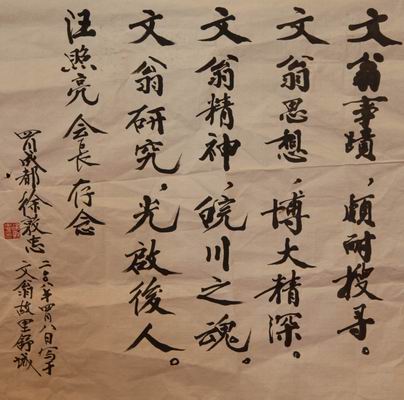 文翁事蹟，頗耐搜寻。
文翁思想，博大精深。
文翁精神，皖川之魂。
文翁研究，光啟後人。
汪照亮会长存念
四川成都徐志
年四月八日写于
文翁故里舒城